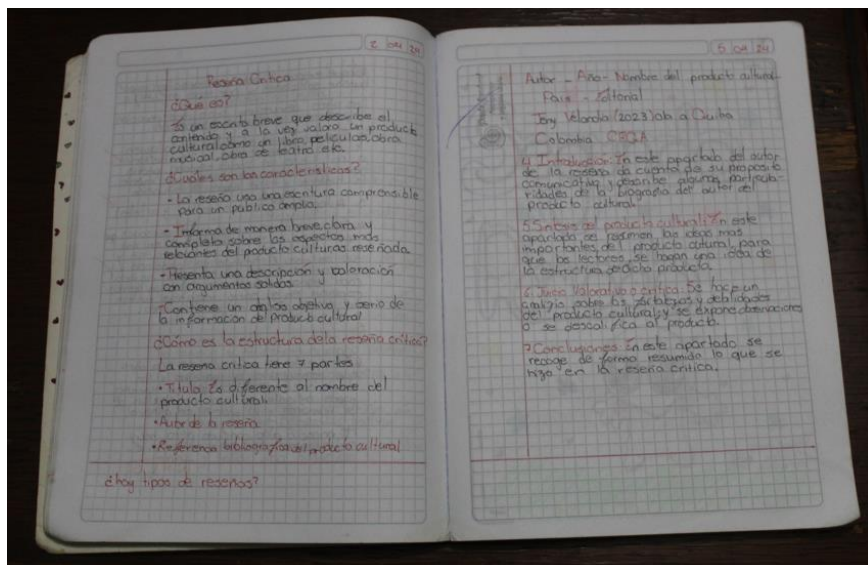 2 04 24
Reseña Critica
¿Qué es?
Es un escrito breve que describe el
contenido y a la vez valora un producto
cultural como un libro, peliculas, obra
musical, obra de teatro etc.
¿Cuáles son las características?
- La reseña usa una escritura comprensible
para un publico amplio.
- Informa de manera breve, clara y
completa sobre los aspectos más
relevantes del producto culturas reseñada
- Presenta una descripción y valoración
con argumentos solidos
- Contiene un objetivo y serio de
la información del producto cultural
¿Cómo es la estructura de la reseña crítica?
La reseña critica tiene 7 partes
• Titulo Es diferente al nombre del
producto cultural.
• Autor de la reseña
• Referencia bibliografica del producto cultural
¿hay tipos de reseñas?
5 04 24
Autor - Año - Nombre del producto cultural -
Pais - Editorial
Velandia (2023) a
Colombia
4) Introducción: En este apartado del autor
de la reseña da cuenta de su proposito
comunicativo y describe algunas particula-
ridades de la biografia del autor del
producto cultural.
5. Sintesis del producto cultural: En este
apartado se resumen las ideas mas
importantes del producto cultural, para
que los lectores se hagan una idea de
la estructura de dicho producto.
6. Juicio Valorativo o critica: Se hace un
analisis sobre las fortalezas y debilidades
del producto cultural y se expone observaciones
o se descalifica al producto.
7 Conclusiones: En este apartado se
recoge de forma resumida lo que se
hizo en la reseña critica.